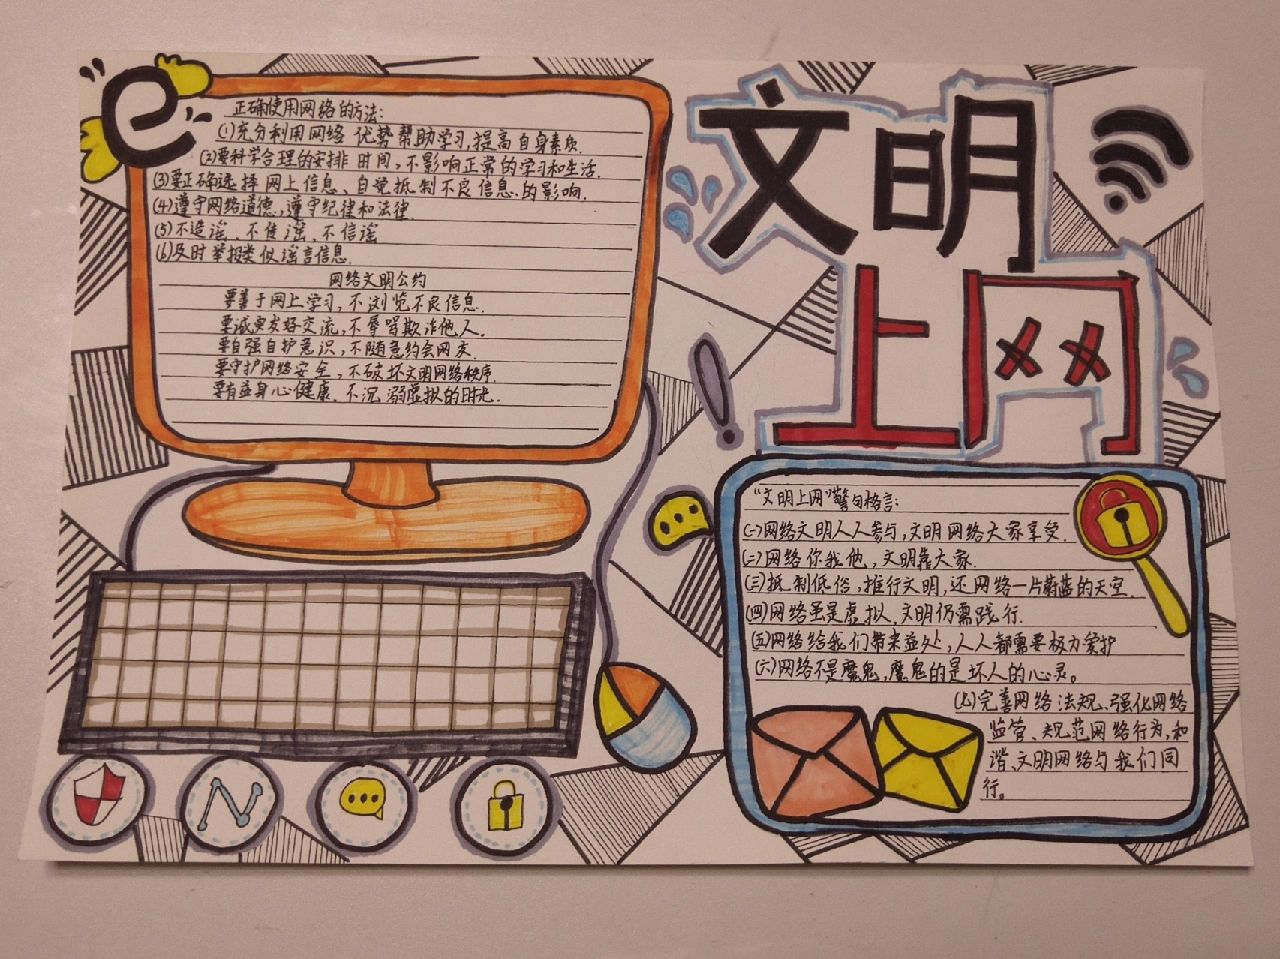 e
正确使用网络的方法:
(1)充分利用网络优势帮助学习,提高自身素质.
(2)要科学合理的安排时间,不影响正常的学习和生活.
(3)要正确选择网上信息、自觉抵制不良信息.的影响.
(4)遵守网络道德,遵守纪律和法律.
(5)不造谣、不传谣、不信谣
(6)及时举报类似谣言信息.
网络文明公约
要善于网上学习,不浏览不良信息.
要诚实友好交流,不辱骂欺诈他人.
要自强自护意识,不随意约会网友.
要守护网络安全,不破坏文明网络秩序.
要有益身心健康、不沉溺虚拟的时光.
文明
上网
"文明上网"警句格言:
(一)网络文明人人参与,文明网络大家享受.
(二)网络你我他,文明靠大家.
(三)抵制低俗,推行文明,还网络一片蔚蓝的天空.
(四)网络虽是虚拟,文明仍需践行.
(五)网络给我们带来益处,人人都需要极力爱护
(六)网络不是魔鬼,魔鬼的是坏人的心灵。
(七)完善网络法规、强化网络
监管、规范网络行为,和
谐、文明网络与我们同
行。